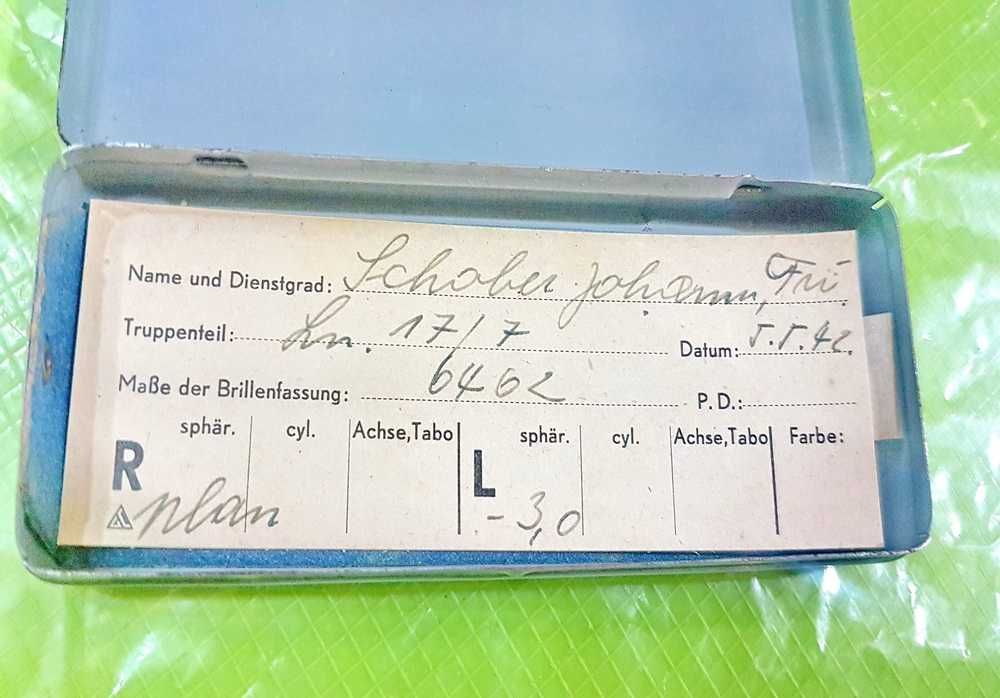 Name und Dienstgrad: Schober Johann, Fü.
Truppenteil: Ln. 17/7 Datum: 5.5.42.
Maße der Brillenfassung: 6462 P.D.:
sphär. cyl. Achse,Tabo sphär. cyl. Achse,Tabo Farbe:
R L
plan - 3,0